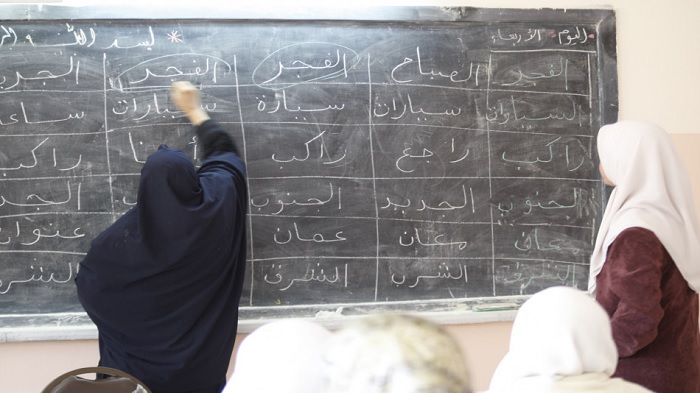 اليوم: الأربعاء
الفجر الصباح الفجر الفجر
السيارات سيارات سيارة سيارات
راكب راجع راكب راكب
الجنوب الجديد الجنوب
عمان معان عمان عنوان
الشرق الشرب الشرق